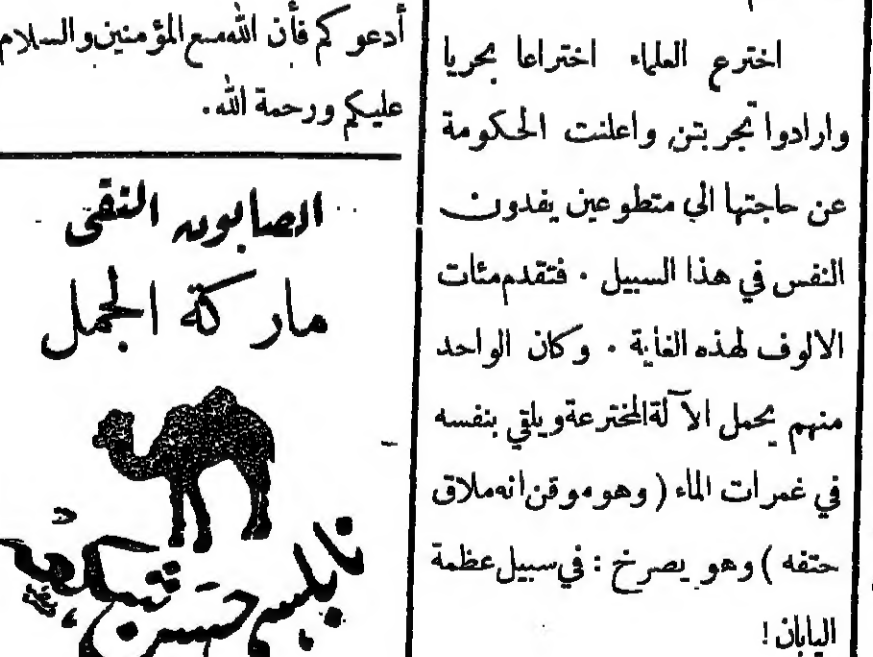 اخترع العلماء اختراعا بحريا
وارادوا تجربتن واعلنت الحكومة
عن حاجتها الي متطوعين يفدون
النفس في هذا السبيل . فتقدم مئات
الالوف لهذه الغاية . وكان الواحد
منهم يحمل الآلة المخترعة ويلقي بنفسه
في غمرات الماء ( وهو موقن انه ملاق
حتفه ) وهو يصرخ : في سبيل عظمة
اليابان !
أدعوكم فأن الله مع المؤمنين والسلام
عليكم ورحمة الله .
الصابون النقي
ماركة الجمل
نابلس حسن